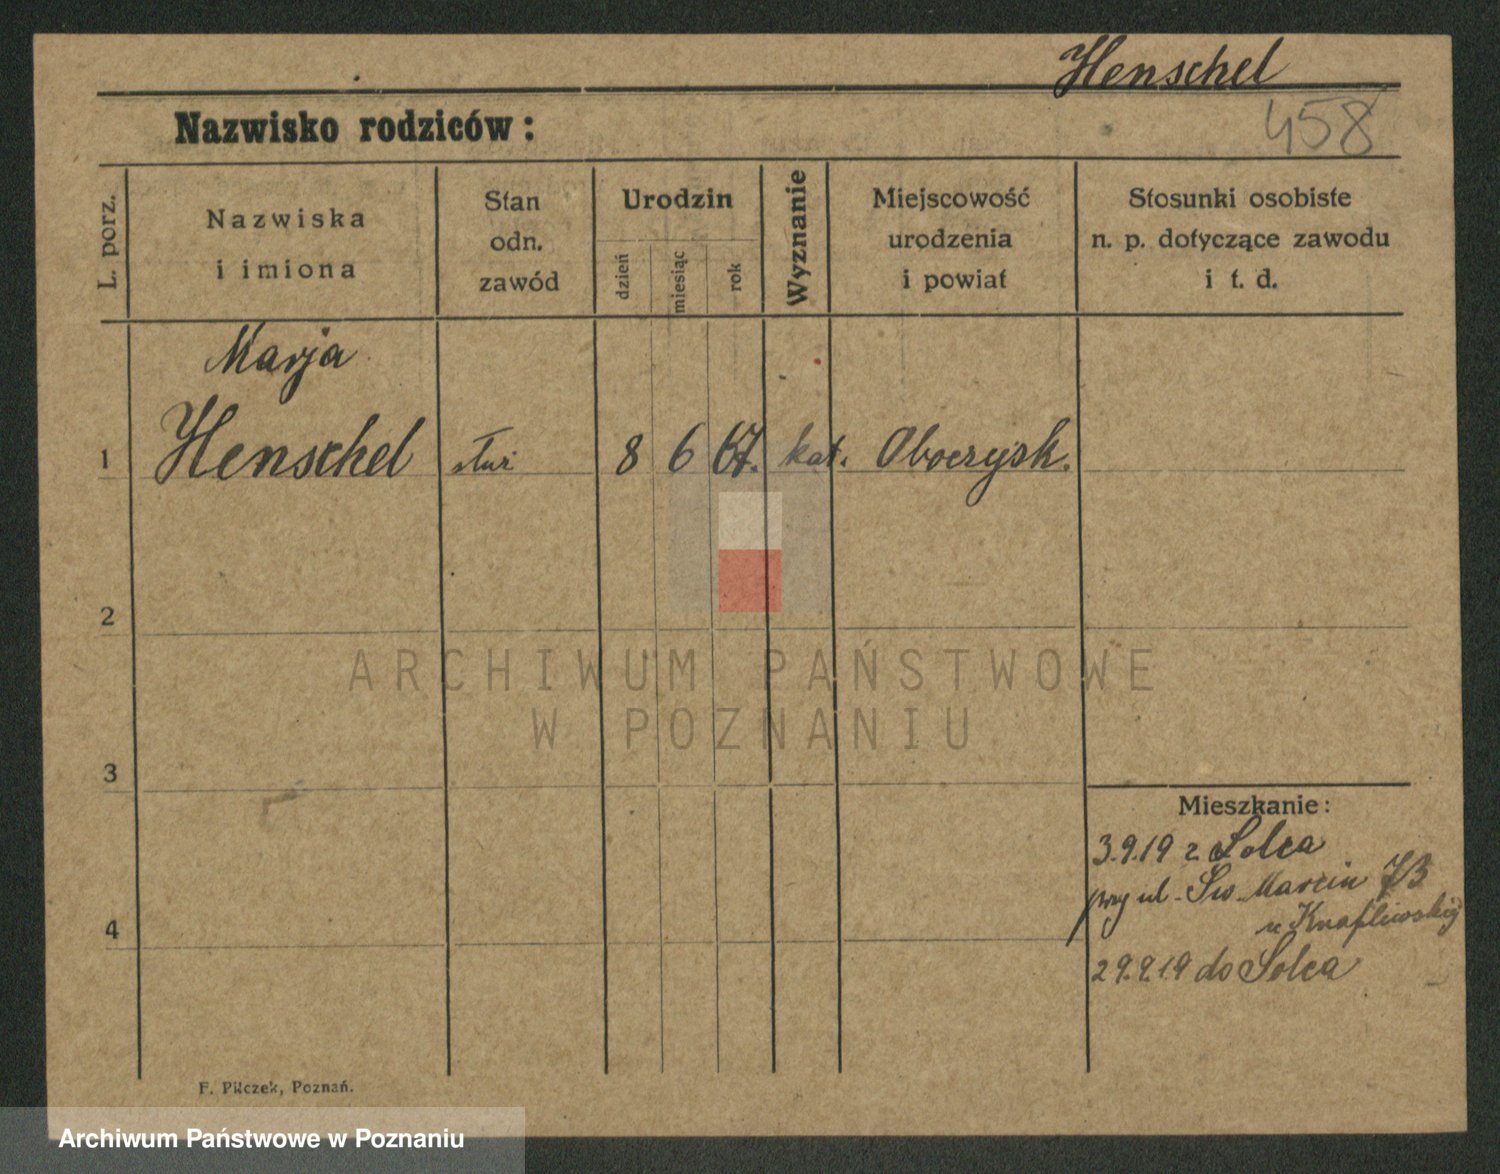 Henschel
458
Nazwisko rodziców:
L. porz.
Nazwiska
i imiona
Stan
odn.
zawód
Urodzin
dzień
miesiąc
rok
Wyznanie
Miejscowość
urodzenia
i powiat
Stosunki osobiste
n. p. dotyczące zawodu
i t. d.
Marja
1 Henschel 8 6 67. kat.
2
3
4
ARCHIWUM PAŃSTWOWE
W POZNANIU
Mieszkanie:
3.9.19 z Solca
przy ul. Św. Marcin 73
u Knaplewskiej
29.9.19 do Solca
F. Pilczek, Poznań.
Archiwum Państwowe w Poznaniu